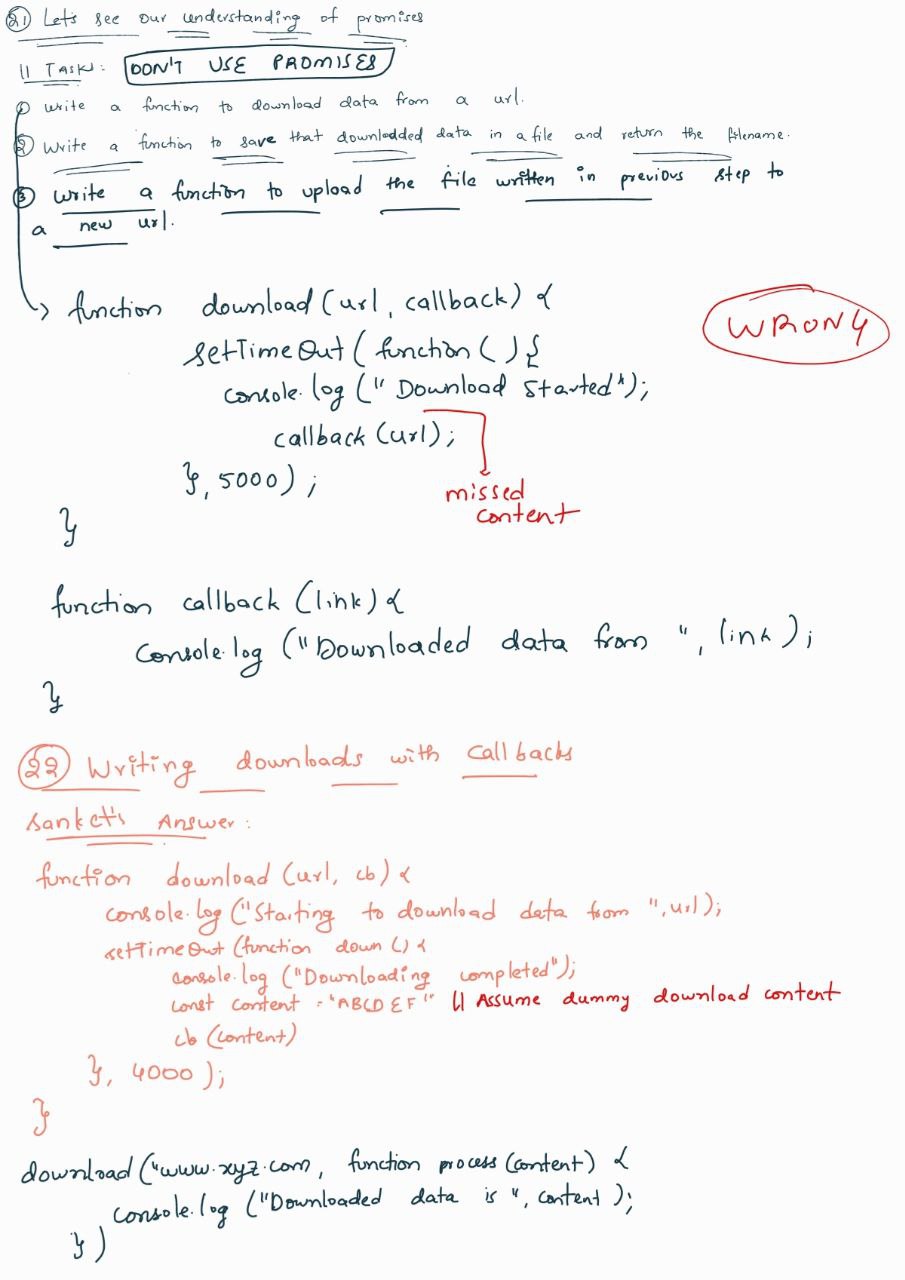 21 Lets see our understanding of promises
// Task: DON'T USE PROMISES
① Write a function to download data from a url.
② Write a function to save that downloaded data in a file and return the filename.
③ Write a function to upload the file written in previous step to
a new url.
function download (url, callback) {
setTimeOut ( function () {
console.log (" Download Started");
callback (url);
}, 5000) ;
}
WRONG
missed
content
function callback (link) {
console.log ("Downloaded data from ", link );
}
22 Writing downloads with callbacks
Sanket's Answer :
function download (url, cb) {
console.log ("Starting to download data from ", url);
setTimeOut (function down () {
console.log ("Downloading completed");
const content = "ABCDEF" // Assume dummy download content
cb (content)
}, 4000 );
}
download ("www.xyz.com, function process (content) {
console.log ("Downloaded data is ", content );
})